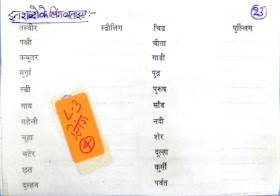 इन शब्दों के लिंग बताइए:-
23
तस्वीर स्त्रीलिंग चित्र पुल्लिंग
पक्षी चीता
कबूतर गाड़ी
मुर्गा पुत्र
स्त्री पुरुष
गाय साँड
सहेली नदी
चूहा शेर
बटेर दूल्हा
छत कुर्सी
दुल्हन पर्वत
L-3
लिंग
4